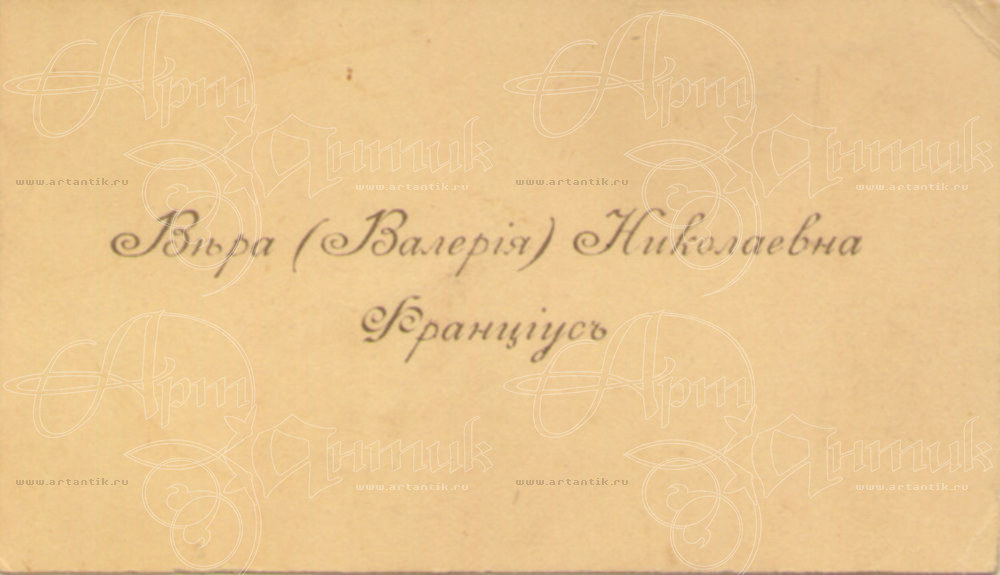 Вѣра (Валерія) Николаевна
Франціусъ
Арт Антик Арт Антик
www.artantik.ru www.artantik.ru www.artantik.ru www.artantik.ru
Арт Антик Арт Антик
www.artantik.ru www.artantik.ru www.artantik.ru www.artantik.ru